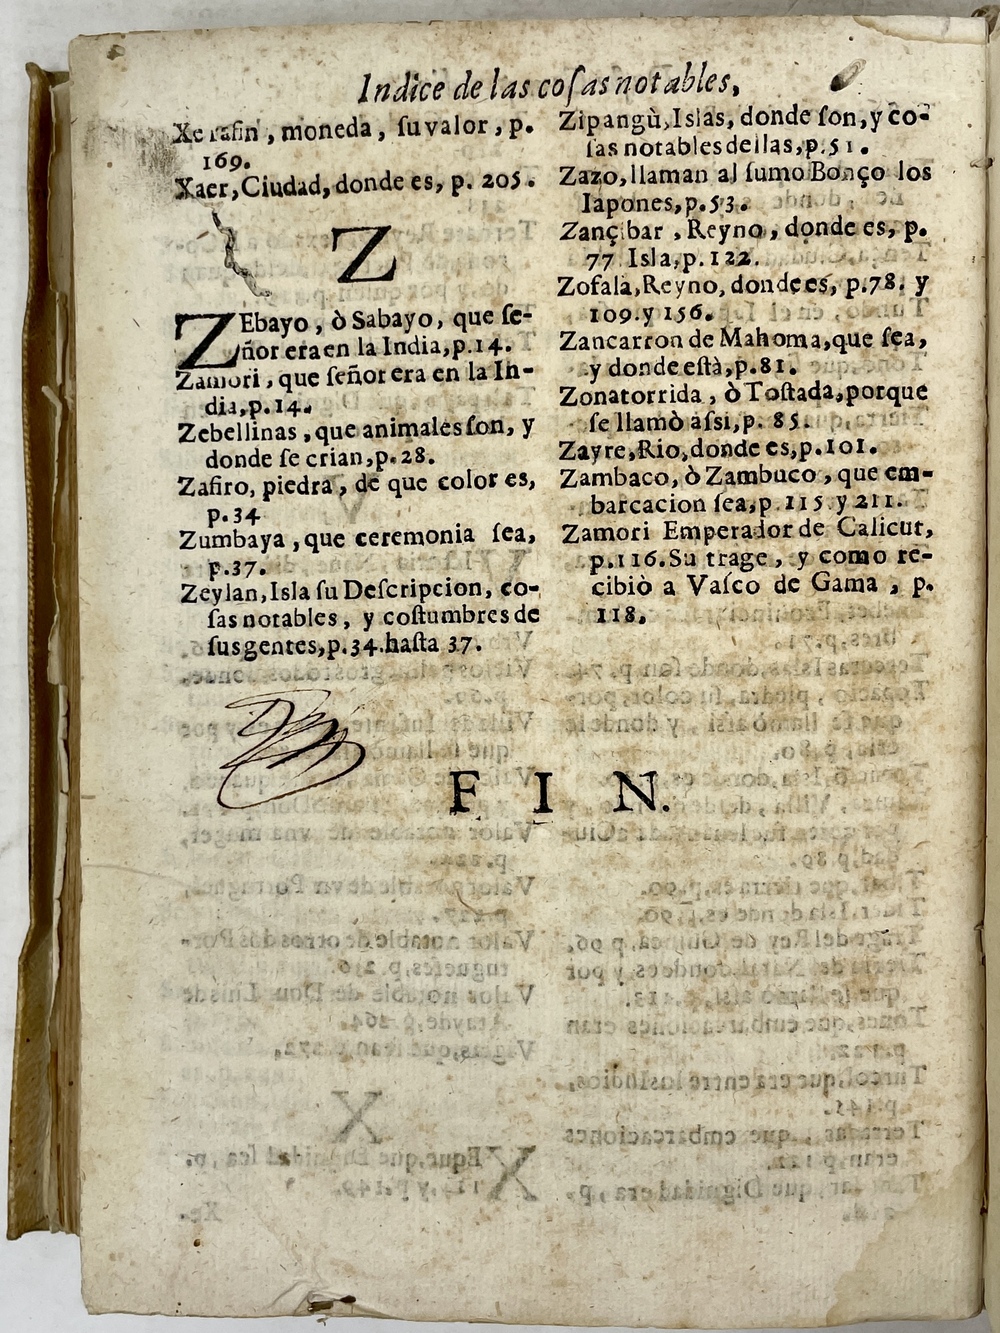 Indice de las coſas notables,
Xerafin, moneda, ſu valor, p.
169.
Xaer, Ciudad, donde es, p. 205.
Z
ZEbayo, ò Sabayo, que ſe-
ñor era en la India, p. 14.
Zamori, que ſeñor era en la In-
dia, p. 14.
Zebellinas, que animales ſon, y
donde ſe crian, p. 28.
Zafiro, piedra, de que color es,
p. 34
Zumbaya, que ceremonia ſea,
p. 37.
Zeylan, Isla ſu Deſcripcion, co-
ſas notables, y coſtumbres de
ſus gentes, p. 34. haſta 37.
Zipangù, Islas, donde ſon, y co-
ſas notables dellas, p. 51.
Zazo, llaman al ſumo Bonço los
Iapones, p. 53.
Zançibar, Reyno, donde es, p.
77 Isla, p. 122.
Zofala, Reyno, donde es, p. 78. y
109. y 156.
Zancarron de Mahoma, que ſea,
y donde eſtà, p. 81.
Zonatorrida, ò Toſtada, porque
ſe llamò aſsi, p. 85.
Zayre, Rio, donde es, p. 101.
Zambaco, ò Zambuco, que em-
barcacion ſea, p 115. y 211.
Zamori Emperador de Calicut,
p. 116. Su trage, y como re-
cibiò a Vaſco de Gama, p.
118.
FIN.